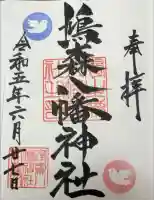 奉拝
鳩森八幡神社
令和五年六月廿七日